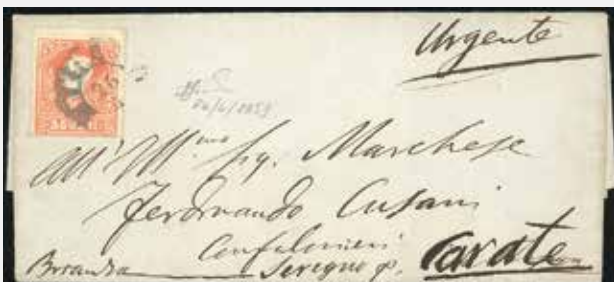 Urgente
24/6/1859
All' Ill.mo Sig. Marchese
Ferdinando Cusani
Confalonieri
Brianza Seregno p. Carate